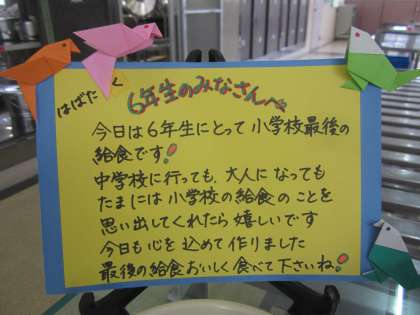 はばたく
6年生のみなさんへ
今日は6年生にとって小学校最後の
給食です!
中学校に行っても、大人になっても
たまには小学校の給食のことを
思い出してくれたら嬉しいです
今日も心を込めて作りました
最後の給食おいしく食べて下さいね!